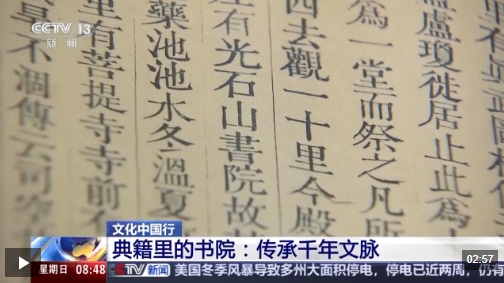 盧瓊徙居止此爲
爲一堂而祭之凡所
四去觀一十里今殿
左有光石山書院故
藥池池水冬溫夏
里有菩提寺寺前
不涸傳云司空
CCTV 13
新闻
文化中国行
典籍里的书院：传承千年文脉
02:57
星期日 08:48 CCTV 新闻 美国冬季风暴导致多州大面积停电，停电已近两周，仍有